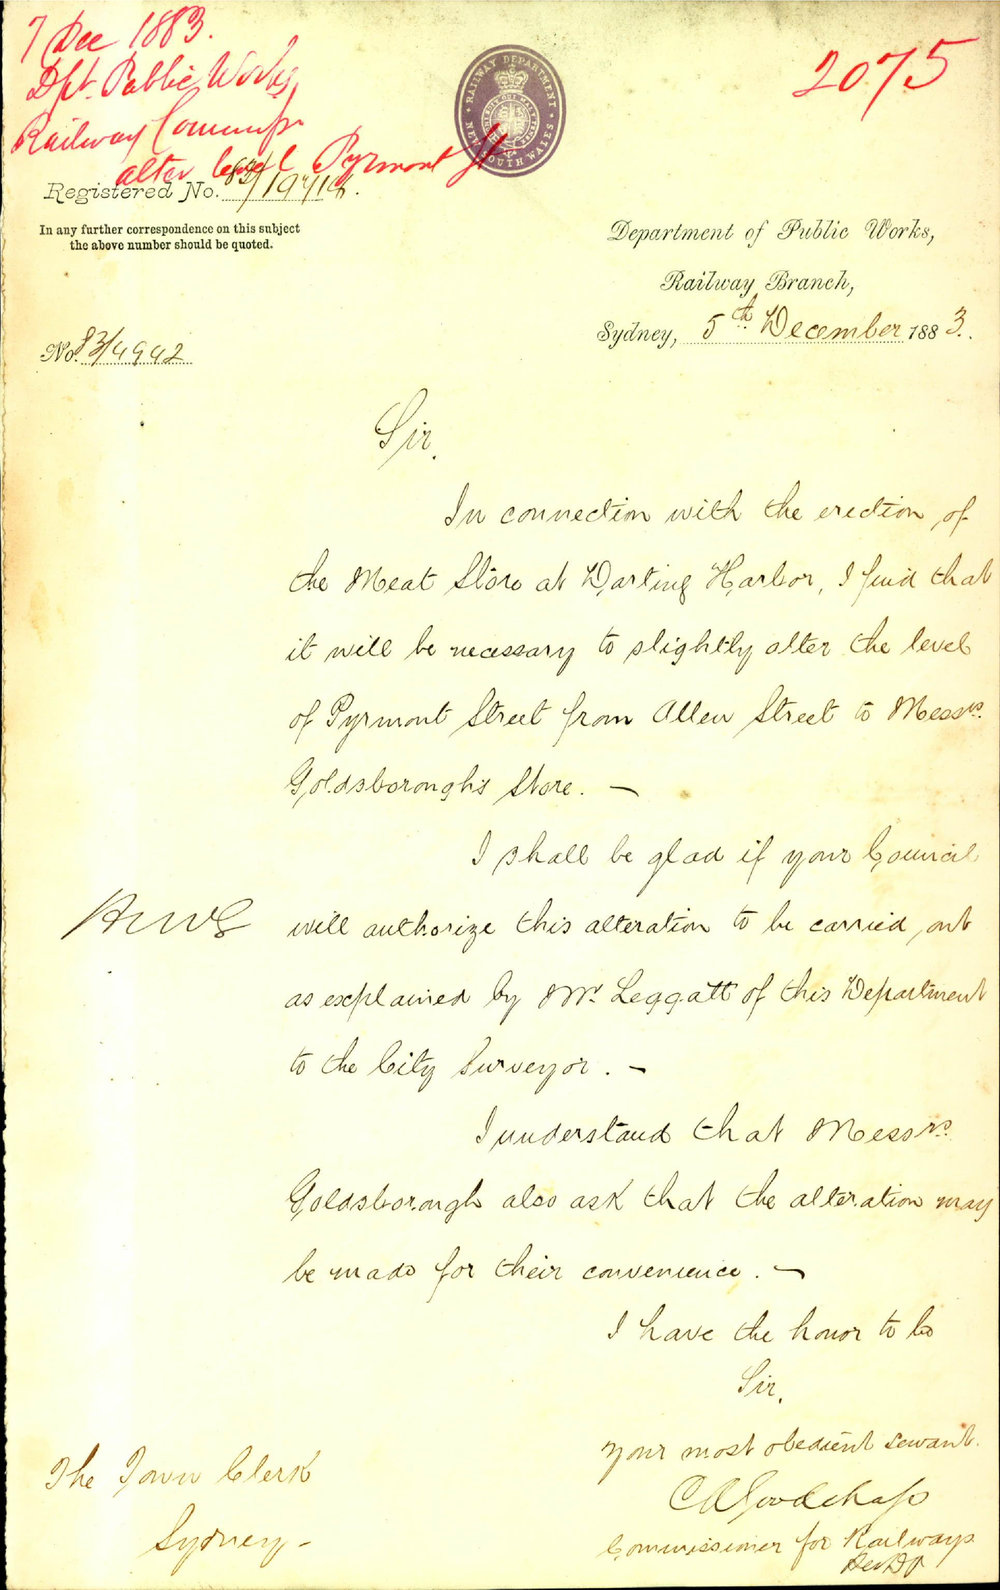 7 Dec 1883.
Dpt. Public Works
Railway Commissr
alter level Pyrmont St
2075
RAILWAY DEPARTMENT
NEW SOUTH WALES
Registered No. 83/
In any further correspondence on this subject
the above number should be quoted.
Department of Public Works,
Railway Branch,
Sydney, 5th December 1883.
No. 83/4942
Sir,
In connection with the erection of
the Meat Store at Darling Harbor, I find that
it will be necessary to slightly alter the level
of Pyrmont Street from Allen Street to Messrs.
Goldsborough's Store. —
I shall be glad if your Council
will authorize this alteration to be carried out
as explained by Mr. Leggatt of this Department
to the City Surveyor. —
I understand that Messrs
Goldsborough also ask that the alteration may
be made for their convenience. —
I have the honor to be
Sir,
Your most obedient servant.
C A Goodchap
Commissioner for Railways
The Town Clerk
Sydney —